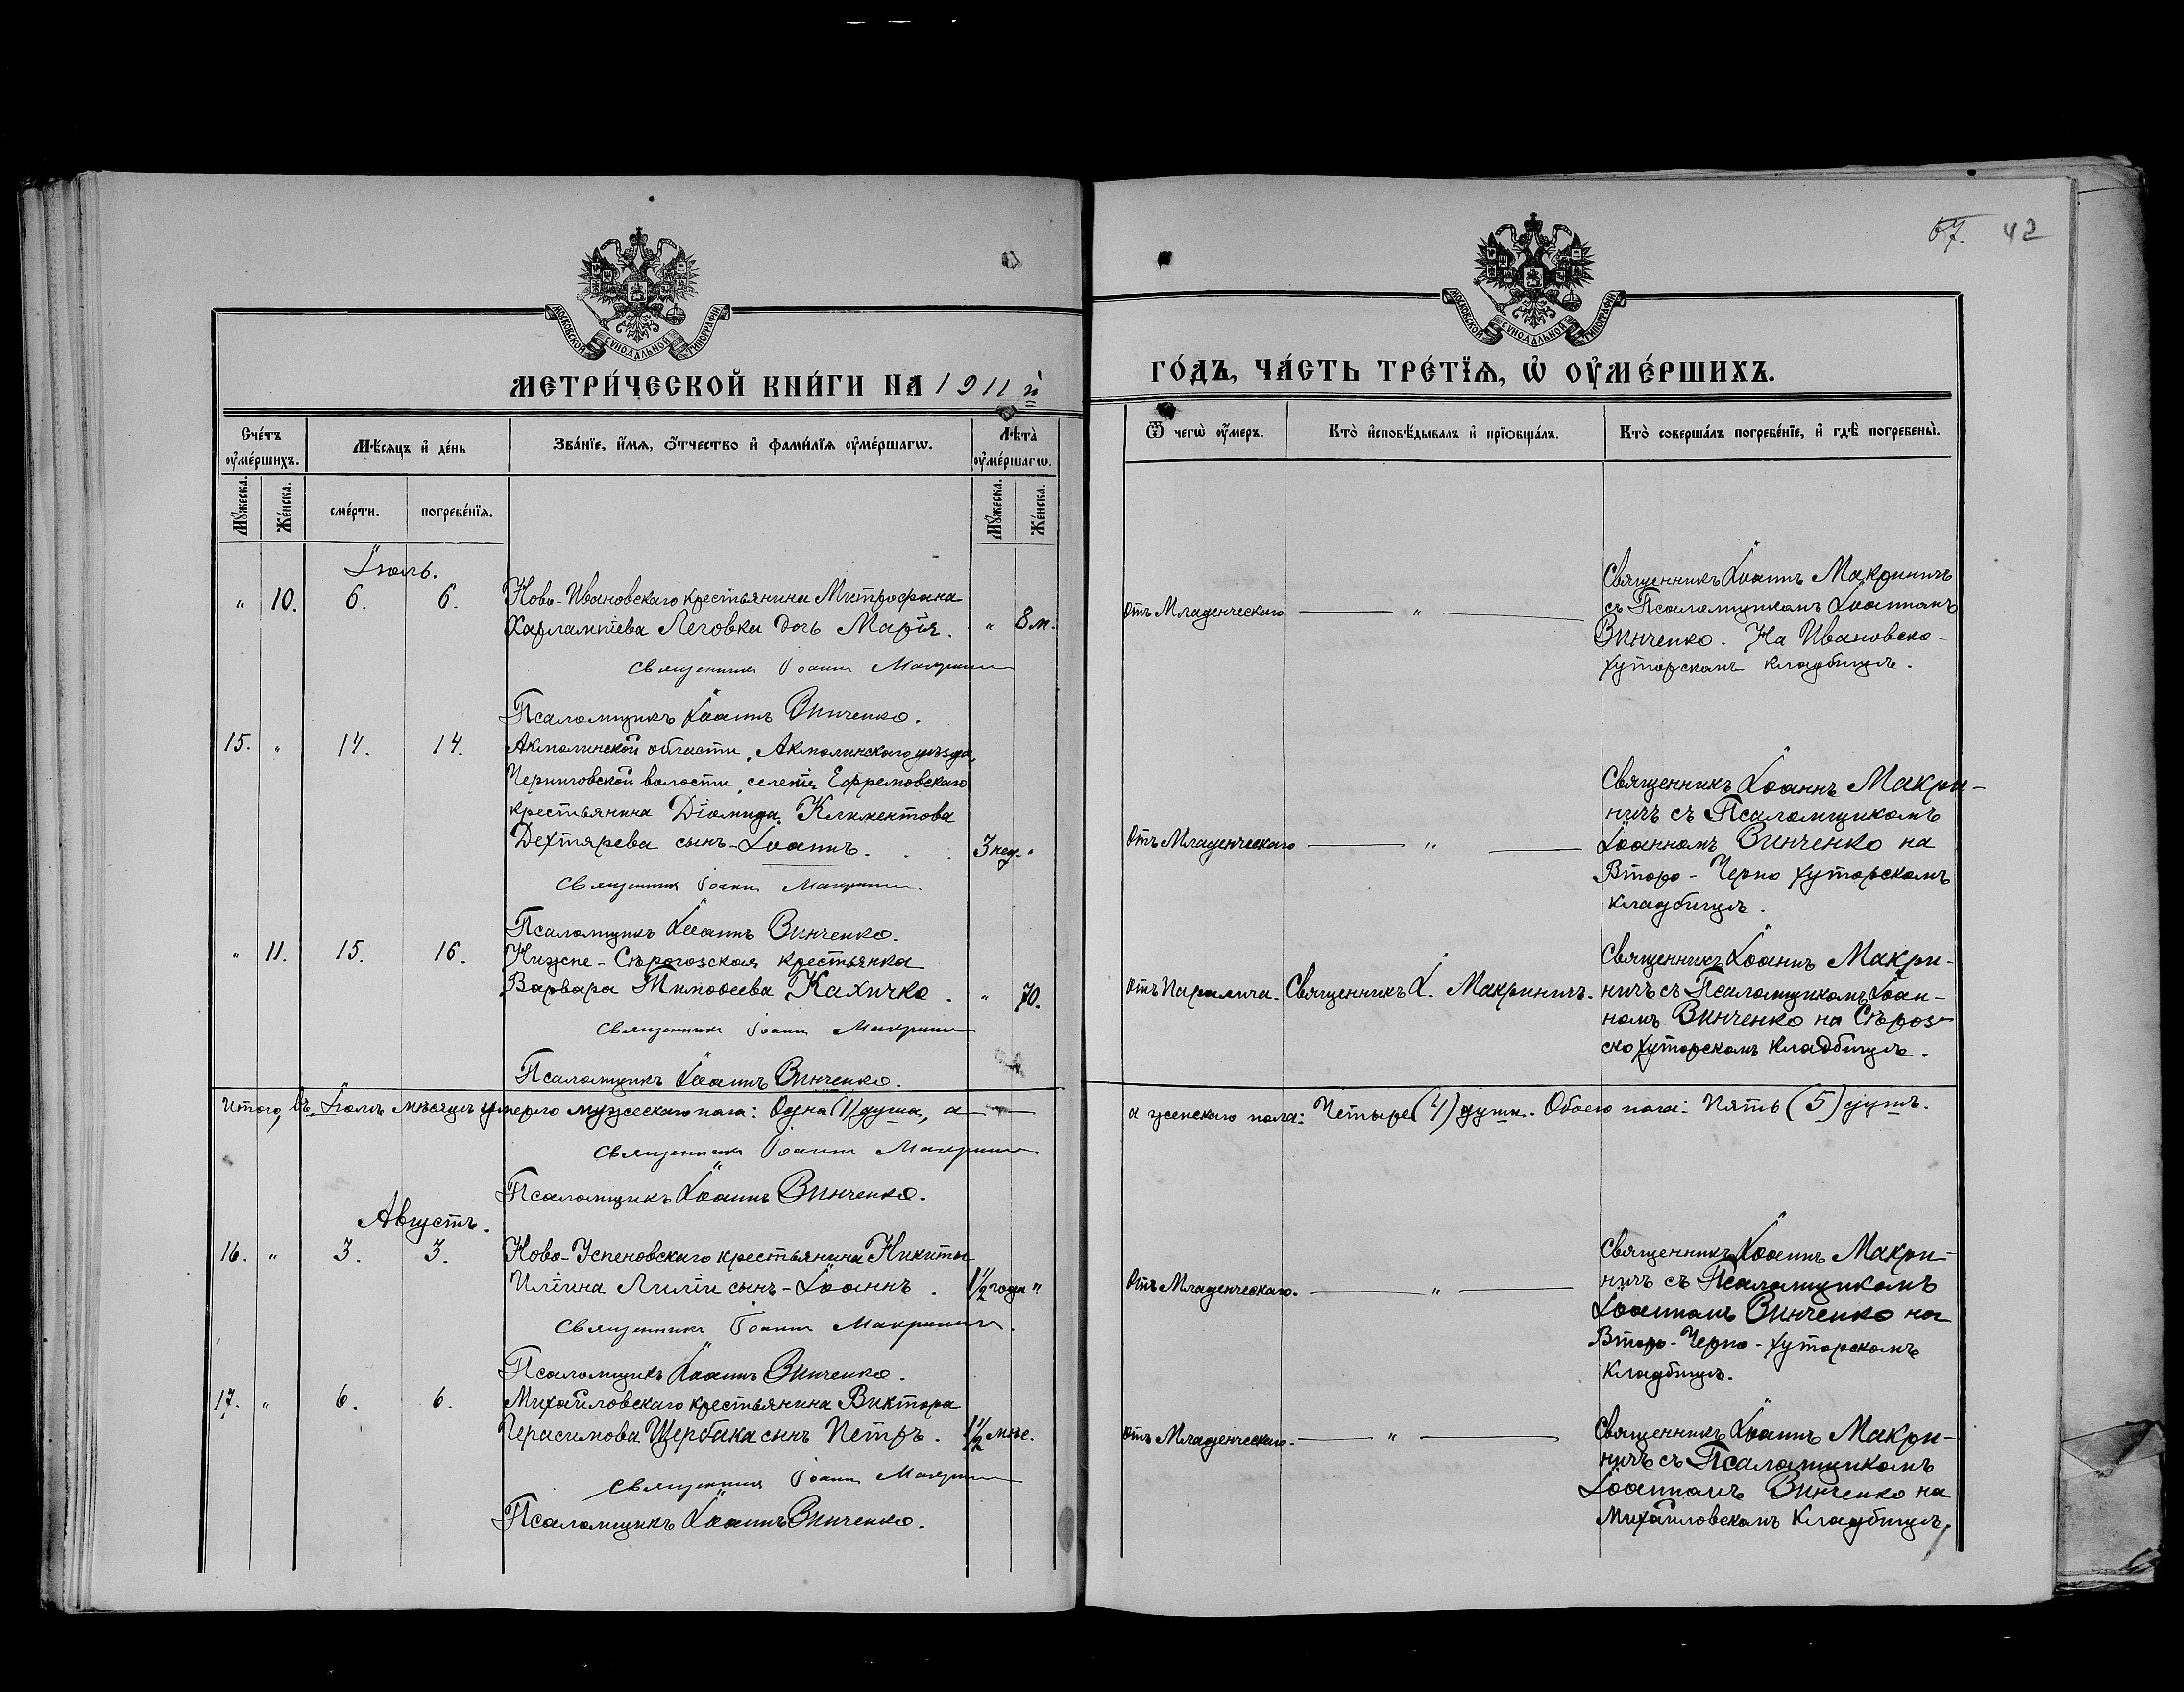 67. 42
МОСКОВСКОЙ СѴНОДАЛЬНОЙ ТИПОГРАФІИ
МОСКОВСКОЙ СѴНОДАЛЬНОЙ ТИПОГРАФІИ
МЕТРИ́ЧЕСКОЙ КНИ́ГИ НА 1911 й
ГО́ДЪ, ЧА́СТЬ ТРЕ́ТЇѦ, Ѡ҆ ОУ҆МЕ́РШИХЪ.
Сче́тъ оу҆ме́ршихъ.
Мѣ́сяцъ и҆ де́нь
Зва́нїе, и҆́мѧ, ѻ҆́тчество и҆ фами́лїѧ оу҆ме́ршагѡ.
Лѣ́та оу҆ме́ршагѡ.
Ѿ чегѡ̀ оу҆́меръ.
Кто̀ и҆сповѣ́дывалъ и҆ прїѡбща́лъ.
Кто̀ соверша́лъ погребе́нїе, и҆ гдѣ̀ погребены̀.
Мꙋ́жеска.
Же́нска.
сме́рти.
погребе́нїѧ.
Мꙋ́жеска.
Же́нска.
Іюль.
" 10. 6. 6. Ново-Ивановскаго крестьянина Митрофана
Харлампіева Леговка дочь Марія. " 8 м.
Священникъ Іоаннъ Макриничъ
Псаломщикъ Іоаннъ Винченко.
Отъ Младенческаго "
Священникъ Іоаннъ Макриничъ
съ Псаломщикомъ Іоанномъ
Винченко. На Ивановско-
хуторскомъ кладбищѣ.
15. " 14. 14. Акмолинской области, Акмолинскаго уѣзда,
Черниговской волости, селенія Ефремовскаго
крестьянина Діомида Климентова
Дехтярева сынъ-Іоаннъ. 3 нед. "
Священникъ Іоаннъ Макриничъ
Псаломщикъ Іоаннъ Винченко.
Отъ Младенческаго "
Священникъ Іоаннъ Макри-
ничъ съ Псаломщикомъ
Іоанномъ Винченко на
Второ-Черно хуторскомъ
кладбищѣ.
" 11. 15. 16. Нижне-Сѣрогозская крестьянка
Варвара Тимоѳеева Кахичко. " 70.
Священникъ Іоаннъ Макриничъ
Псаломщикъ Іоаннъ Винченко.
Отъ Паралича. Священникъ І. Макриничъ.
Священникъ Іоаннъ Макри-
ничъ съ Псаломщикомъ Іоан-
номъ Винченко на Сѣроз-
ско хуторскомъ кладбищѣ.
Итого, въ Іюлѣ мѣсяцѣ умерло мужескаго пола: Одна (1) душа, а
а женскаго пола: Четыре (4) души. Обоего пола: Пять (5) душъ.
Священникъ Іоаннъ Макриничъ
Псаломщикъ Іоаннъ Винченко.
Августъ.
16. " 3. 3. Ново-Успеновскаго крестьянина Никиты
Иліина Лиліи сынъ-Іоаннъ. 1 1/2 года "
Священникъ Іоаннъ Макриничъ.
Псаломщикъ Іоаннъ Винченко.
Отъ Младенческаго. "
Священникъ Іоаннъ Макри-
ничъ съ Псаломщикомъ
Іоанномъ Винченко на
Второ-Черно-хуторскомъ
кладбищѣ.
17. " 6. 6. Михайловскаго крестьянина Виктора
Герасимова Щербака сынъ Петръ. 1 1/2 мѣс.
Священникъ Іоаннъ Макриничъ
Псаломщикъ Іоаннъ Винченко.
Отъ Младенческаго. "
Священникъ Іоаннъ Макри-
ничъ съ Псаломщикомъ
Іоанномъ Винченко на
Михайловскомъ кладбищѣ.